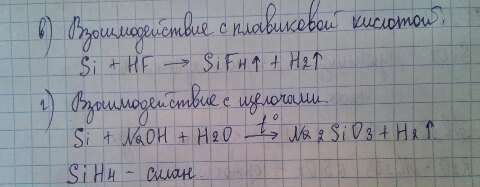 в) Взаимодействие с плавиковой кислотой.
Si + HF → SiF4↑ + H2↑
г) Взаимодействие с щелочами.
Si + NaOH + H2O t°→ Na2SiO3 + H2↑
SiH4 – силан.